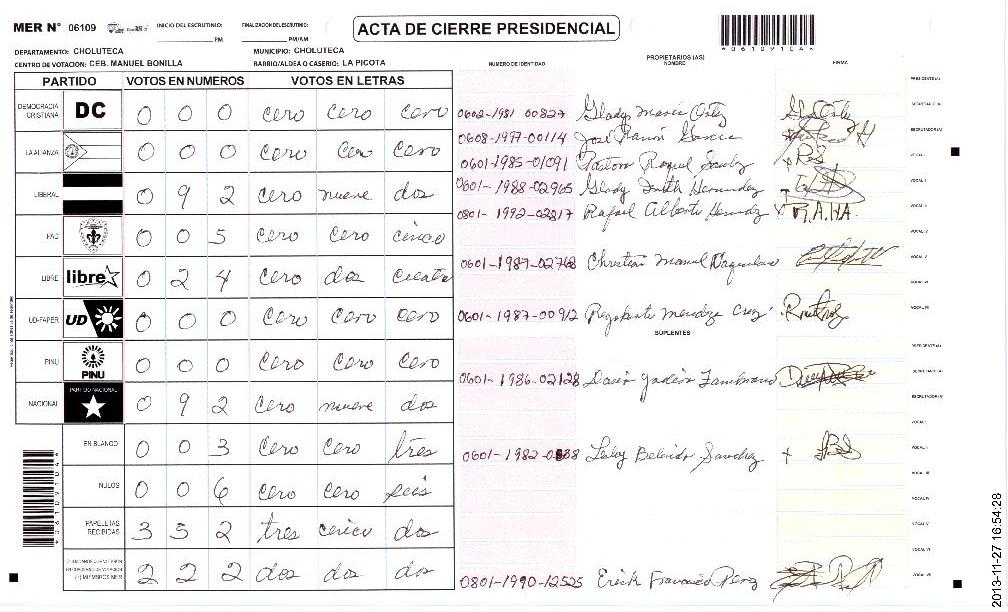 MER N° 06109
INICIO DEL ESCRUTINIO: PM
FINALIZACION DEL ESCRUTINIO: PM/AM
ACTA DE CIERRE PRESIDENCIAL
DEPARTAMENTO: CHOLUTECA
MUNICIPIO: CHOLUTECA
CENTRO DE VOTACION: CEB. MANUEL BONILLA
BARRIO/ALDEA O CASERIO: LA PICOTA
PARTIDO VOTOS EN NUMEROS VOTOS EN LETRAS
DEMOCRACIA CRISTIANA DC 0 0 0 cero cero cero
LA ALIANZA 0 0 0 cero cero cero
LIBERAL 0 9 2 cero nueve dos
PAC 0 0 5 cero cero cinco
LIBRE libre 0 2 4 cero dos cuatro
UD-FAPER UD 0 0 0 cero cero cero
PINU PINU 0 0 0 cero cero cero
NACIONAL PARTIDO NACIONAL 0 9 2 cero nueve dos
EN BLANCO 0 0 3 cero cero tres
NULOS 0 0 6 cero cero seis
PAPELETAS RECIBIDAS 3 5 2 tres cinco dos
(+) MIEMBROS MER 2 2 2 dos dos dos
NUMERO DE IDENTIDAD
PROPIETARIOS (AS)
NOMBRE
FIRMA
0608-1997-00114 José Ramón García
0601-1985-01091 Pastora Raquel
0601-1988-02965 Gledy Hernandez
0801-1992-02817 Rafael Alberto
0601-1987-02768 Christian Manuel
0601-1987-00912 Mendoza Cruz
SUPLENTES
0601-1986-02128
0601-1982- Lesby Sanchez
0801-1990-12525 Erick Francisco Perez
PRESIDENTE (A)
SECRETARIO (A)
ESCRUTADOR (A)
VOCAL I
VOCAL II
VOCAL III
VOCAL IV
VOCAL V
VOCAL VI
VOCAL VII
PRESIDENTE (A)
SECRETARIO (A)
ESCRUTADOR (A)
VOCAL I
VOCAL II
VOCAL III
VOCAL IV
VOCAL V
VOCAL VI
VOCAL VII
2013-11-27 16:54:28